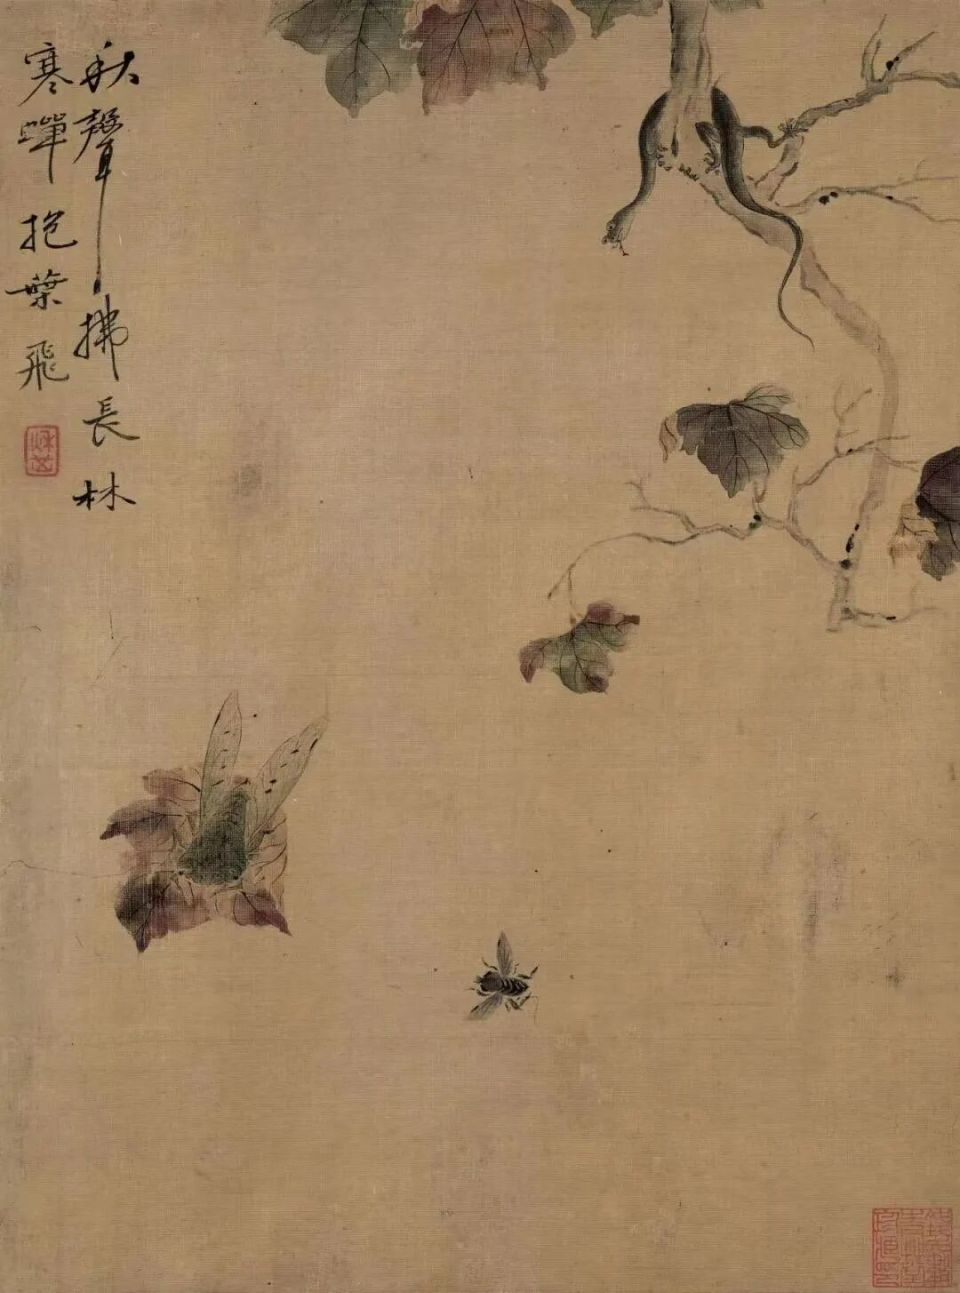 秋聲拂長林
寒蟬抱葉飛